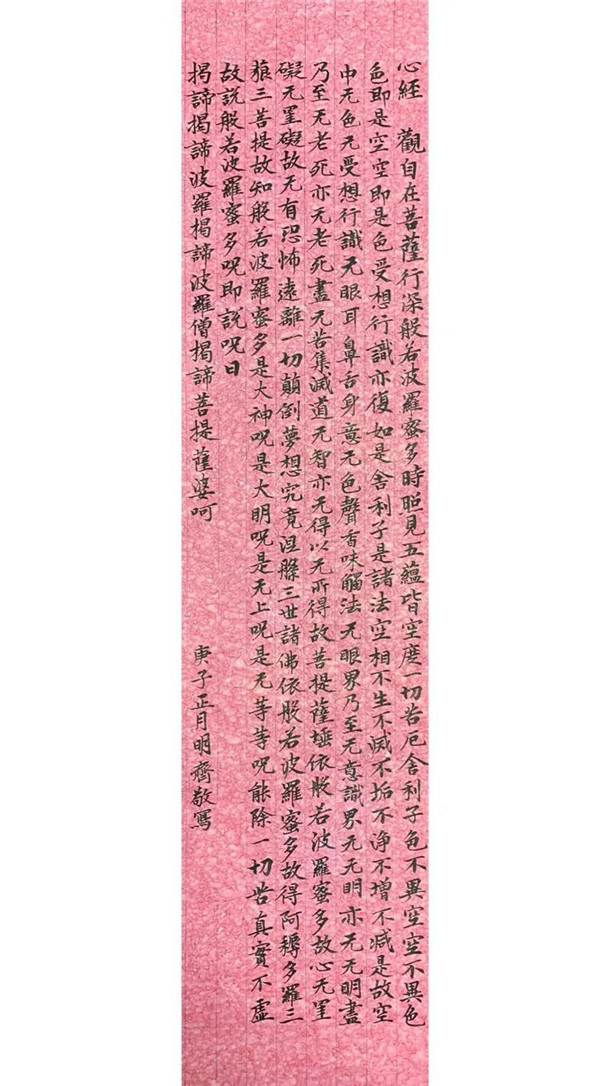 心經 觀自在菩薩行深般若波羅蜜多時照見五蘊皆空度一切苦厄舍利子色不異空空不異色
色即是空空即是色受想行識亦復如是舍利子是諸法空相不生不滅不垢不浄不增不減是故空
中无色无受想行識无眼耳鼻舌身意无色聲香味觸法无眼界乃至无意識界无无明亦无无明盡
乃至无老死亦无老死盡无苦集滅道无智亦无得以无所得故菩提薩埵依般若波羅蜜多故心无罣
礙无罣礙故无有恐怖遠離一切顛倒夢想究竟涅槃三世諸佛依般若波羅蜜多故得阿耨多羅三
藐三菩提故知般若波羅蜜多是大神呪是大明呪是无上呪是无等等呪能除一切苦真實不虛
故説般若波羅蜜多呪即説呪曰
揭諦揭諦波羅揭諦波羅僧揭諦菩提薩婆呵
庚子正月明齋敬寫